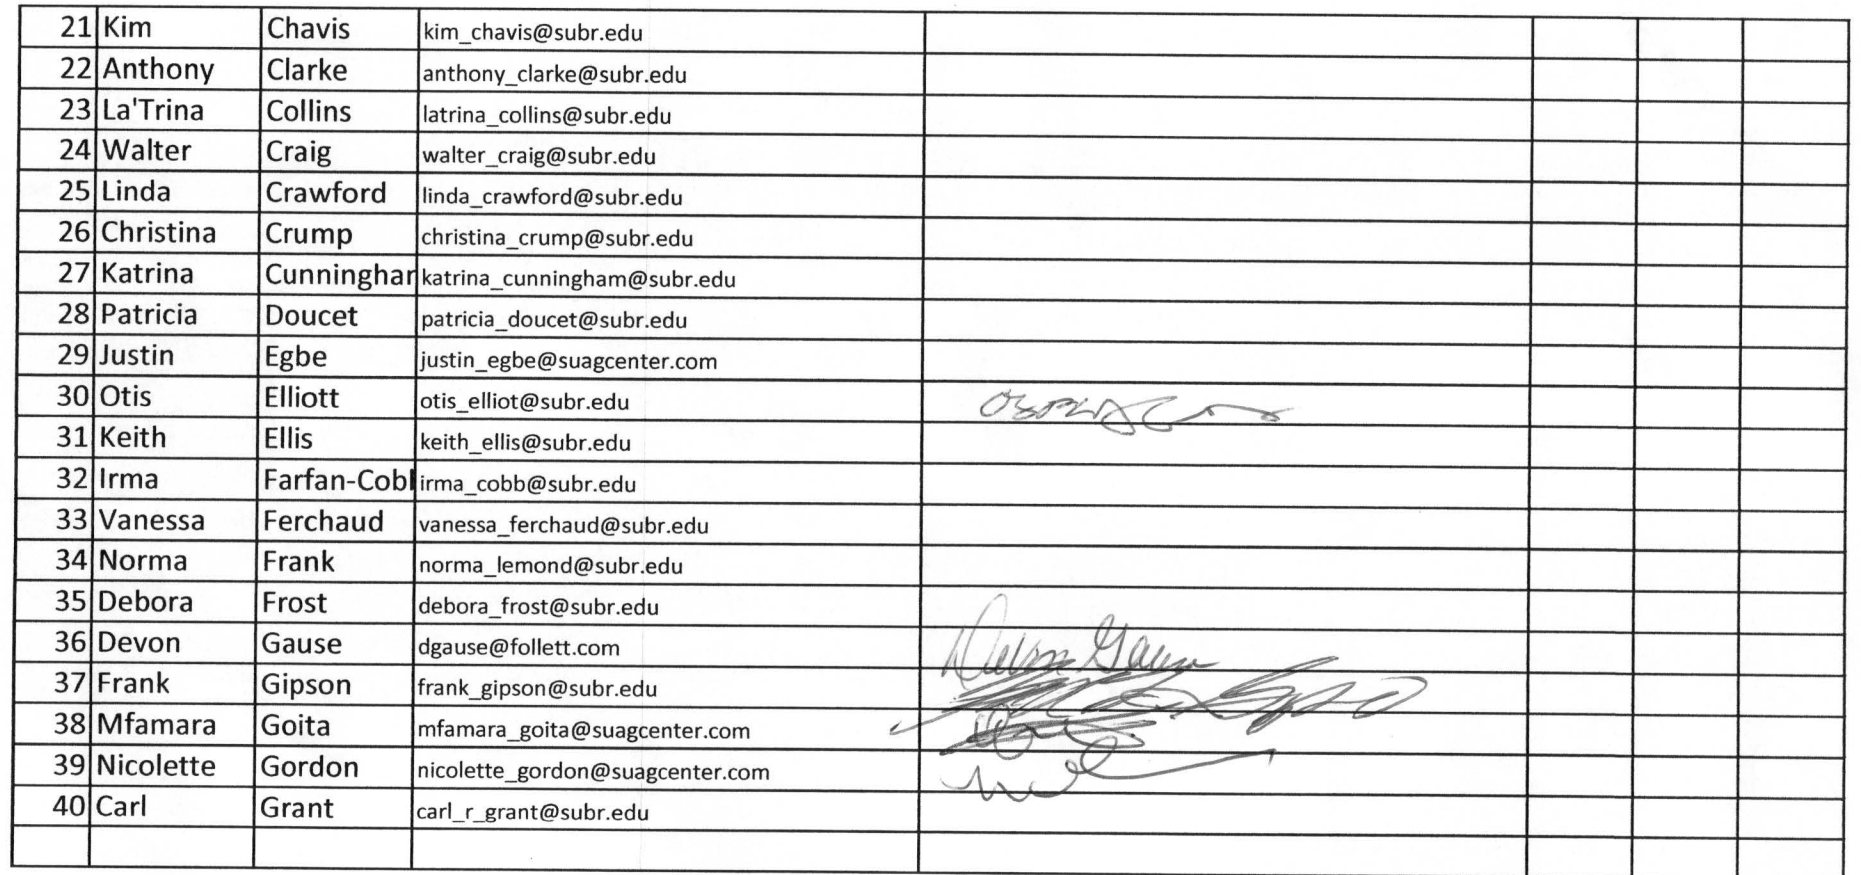 21 Kim Chavis kim_chavis@subr.edu
22 Anthony Clarke anthony_clarke@subr.edu
23 La'Trina Collins latrina_collins@subr.edu
24 Walter Craig walter_craig@subr.edu
25 Linda Crawford linda_crawford@subr.edu
26 Christina Crump christina_crump@subr.edu
27 Katrina Cunninghar katrina_cunningham@subr.edu
28 Patricia Doucet patricia_doucet@subr.edu
29 Justin Egbe justin_egbe@suagcenter.com
30 Otis Elliott otis_elliot@subr.edu
31 Keith Ellis keith_ellis@subr.edu
32 Irma Farfan-Cobl irma_cobb@subr.edu
33 Vanessa Ferchaud vanessa_ferchaud@subr.edu
34 Norma Frank norma_lemond@subr.edu
35 Debora Frost debora_frost@subr.edu
36 Devon Gause dgause@follett.com Devon Gause
37 Frank Gipson frank_gipson@subr.edu
38 Mfamara Goita mfamara_goita@suagcenter.com
39 Nicolette Gordon nicolette_gordon@suagcenter.com
40 Carl Grant carl_r_grant@subr.edu